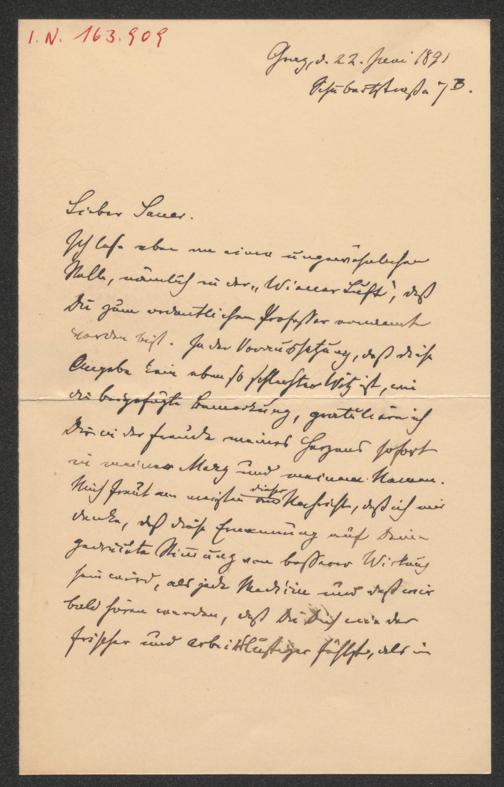 I. N. 163.909
Graz, d. 22. Juni 1891
Schubertstraße 7 B.
Lieber Sauer.
Ich lese eben an einer ungewöhnlichen
Stelle, nämlich in der „Wiener Luft", daß
Du zum ordentlichen Professor ernannt
worden bist. In der Voraussetzung, daß diese
Angabe kein ebenso schlechter Witz ist, wie
die beigefügte Bemerkung, gratuliere ich
Dir in der Freude meines Herzens sofort
in meinem und meinem Namen.
Mich freut am meisten dieser Nachricht, daß ich mir
denke, daß diese Ernennung auf Deine
gedrückte Stimmung von besserer Wirkung
sein wird, als jede Medicin und daß wir
bald hören werden, daß Du Dich wieder
frischer und arbeitslustiger fühlst, als in